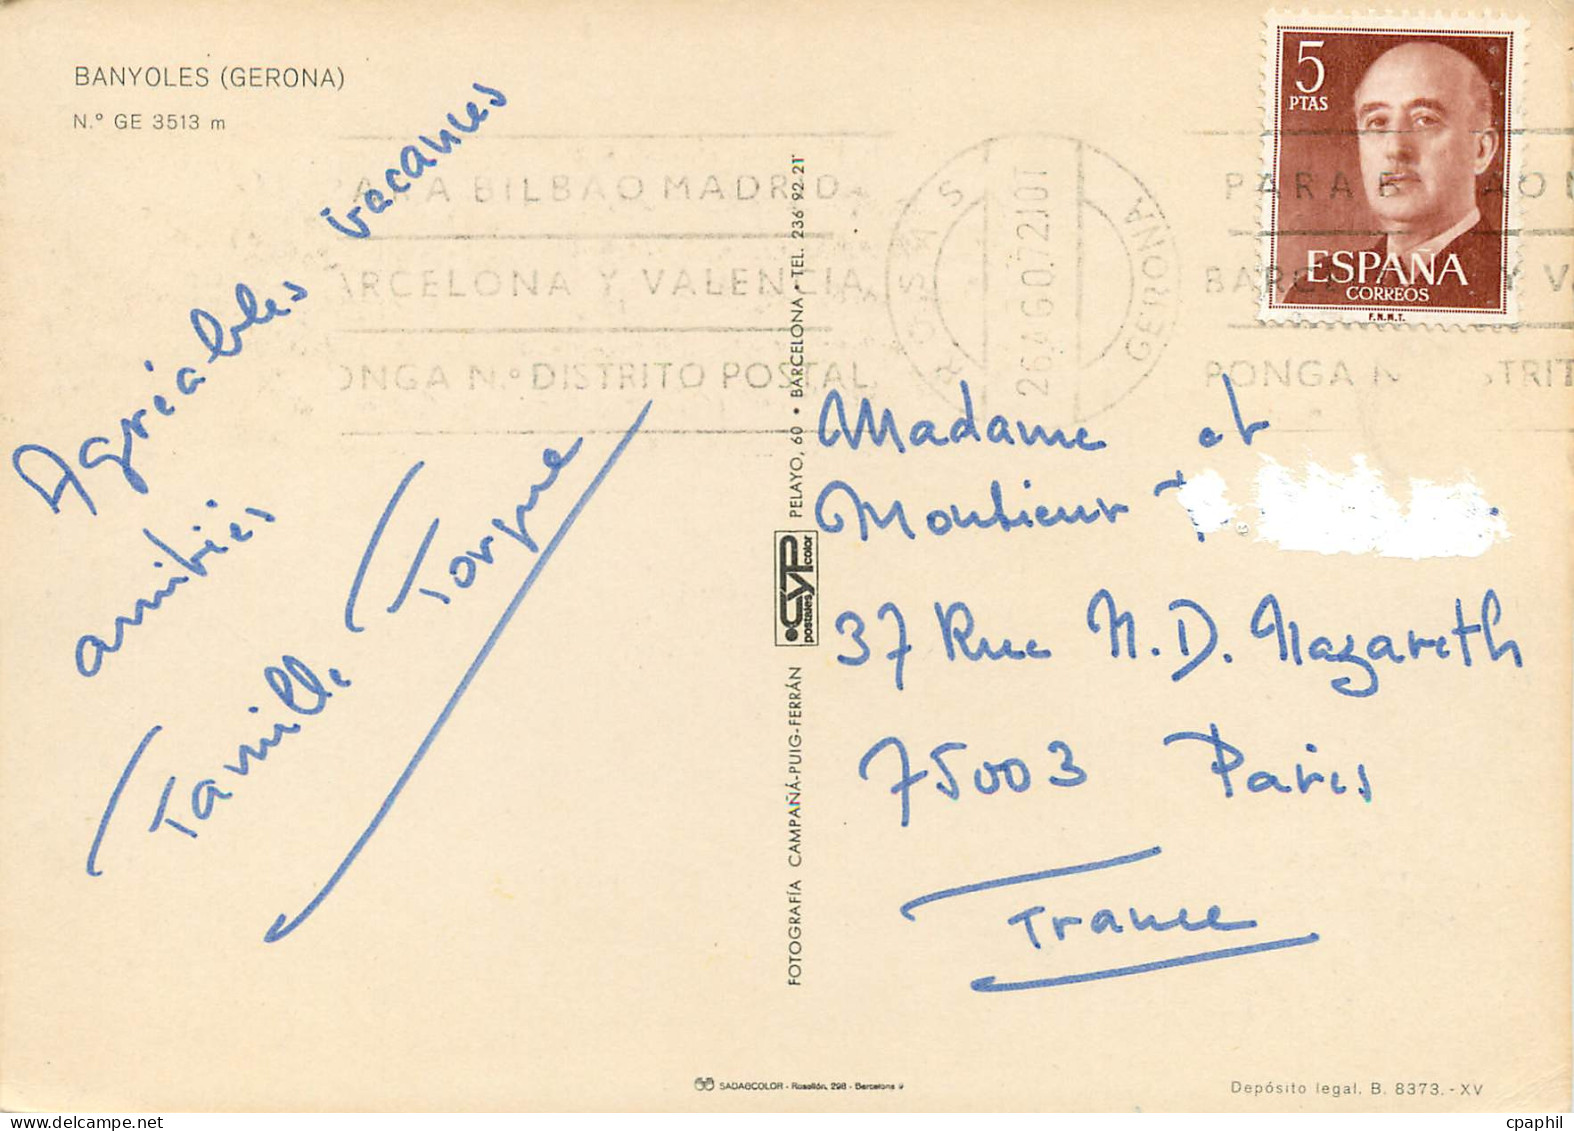 BANYOLES (GERONA)
N.º GE 3513 m
Agréables vacances
amitiés
Famille Torque
PARA BILBAO MADRID
BARCELONA Y VALENCIA
PONGA N.º DISTRITO POSTAL
GERONA
5
PTAS
ESPAÑA
CORREOS
F.N.M.T.
PARA B AO M
BARC Y VA
PONGA N STRIT
FOTOGRAFÍA CAMPAÑÁ-PUIG-FERRÁN
CYP
postales color
PELAYO, 60 • BARCELONA • TEL. 236 92 21
Madame et
Monsieur
37 Rue N.D. Nazareth
75003 Paris
France
SADAGCOLOR - Rosellón, 298 - Barcelona 9
Depósito legal. B. 8373. - XV
cpaphil